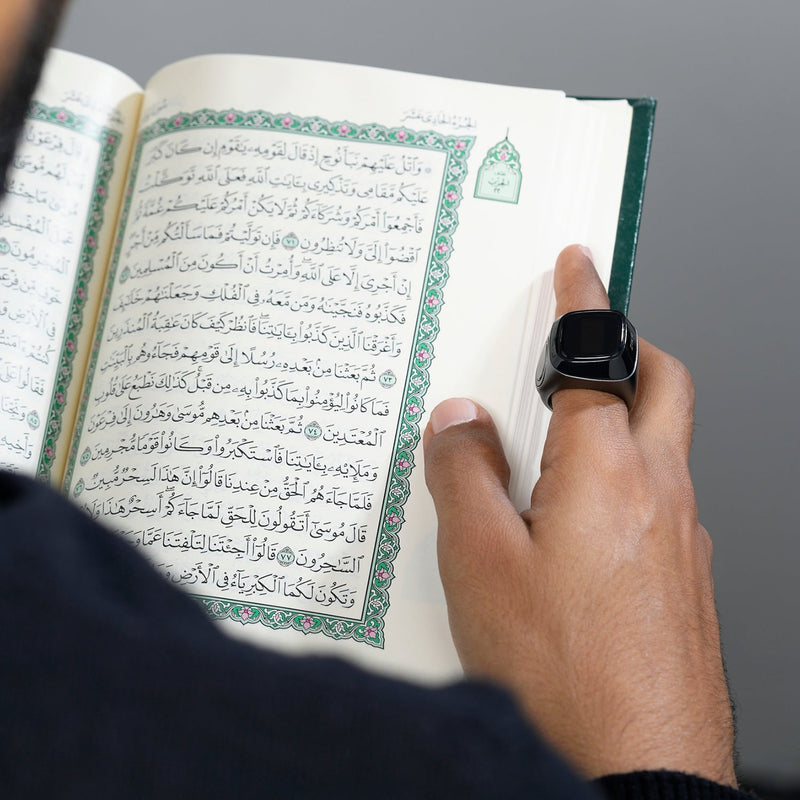 الجزء الحادي عشر
۞ وَٱتْلُ عَلَيْهِمْ نَبَأَ نُوحٍ إِذْ قَالَ لِقَوْمِهِۦ يَٰقَوْمِ إِن كَانَ كَبُرَ
عَلَيْكُم مَّقَامِى وَتَذْكِيرِى بِـَٔايَٰتِ ٱللَّهِ فَعَلَى ٱللَّهِ تَوَكَّلْتُ
فَأَجْمِعُوٓا۟ أَمْرَكُمْ وَشُرَكَآءَكُمْ ثُمَّ لَا يَكُنْ أَمْرُكُمْ عَلَيْكُمْ غُمَّةً ثُمَّ
ٱقْضُوٓا۟ إِلَىَّ وَلَا تُنظِرُونِ ٧١ فَإِن تَوَلَّيْتُمْ فَمَا سَأَلْتُكُم مِّنْ أَجْرٍ
إِنْ أَجْرِىَ إِلَّا عَلَى ٱللَّهِ وَأُمِرْتُ أَنْ أَكُونَ مِنَ ٱلْمُسْلِمِينَ ٧٢
فَكَذَّبُوهُ فَنَجَّيْنَٰهُ وَمَن مَّعَهُۥ فِى ٱلْفُلْكِ وَجَعَلْنَٰهُمْ خَلَٰٓئِفَ
وَأَغْرَقْنَا ٱلَّذِينَ كَذَّبُوا۟ بِـَٔايَٰتِنَا فَٱنظُرْ كَيْفَ كَانَ عَٰقِبَةُ ٱلْمُنذَرِينَ
٧٣ ثُمَّ بَعَثْنَا مِنۢ بَعْدِهِۦ رُسُلًا إِلَىٰ قَوْمِهِمْ فَجَآءُوهُم بِٱلْبَيِّنَٰتِ
فَمَا كَانُوا۟ لِيُؤْمِنُوا۟ بِمَا كَذَّبُوا۟ بِهِۦ مِن قَبْلُ كَذَٰلِكَ نَطْبَعُ عَلَىٰ قُلُوبِ
ٱلْمُعْتَدِينَ ٧٤ ثُمَّ بَعَثْنَا مِنۢ بَعْدِهِم مُّوسَىٰ وَهَٰرُونَ إِلَىٰ فِرْعَوْنَ
وَمَلَإِيْهِۦ بِـَٔايَٰتِنَا فَٱسْتَكْبَرُوا۟ وَكَانُوا۟ قَوْمًا مُّجْرِمِينَ ٧٥
فَلَمَّا جَآءَهُمُ ٱلْحَقُّ مِنْ عِندِنَا قَالُوٓا۟ إِنَّ هَٰذَا لَسِحْرٌ مُّبِينٌ ٧٦
قَالَ مُوسَىٰٓ أَتَقُولُونَ لِلْحَقِّ لَمَّا جَآءَكُمْ أَسِحْرٌ هَٰذَا وَلَا
ٱلسَّٰحِرُونَ ٧٧ قَالُوٓا۟ أَجِئْتَنَا لِتَلْفِتَنَا عَمَّا
وَتَكُونَ لَكُمَا ٱلْكِبْرِيَآءُ فِى ٱلْأَرْضِ
نصف
الحزب
٢٢
لَهُم مُّوسَىٰٓ
مُوسَىٰ مَا جِئْتُم
عَمَلَ ٱلْمُفْسِدِينَ
ٱلْمُجْرِمُونَ
خَوْفٍ مِّن فِرْعَوْنَ
فِى ٱلْأَرْضِ
فَقَالُوا۟ عَلَى
وَنَجِّنَا
وَأَخِيهِ